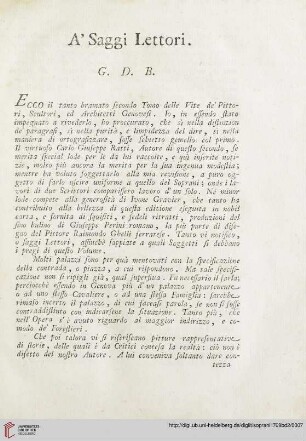 A' Saggi Lettori.
G. D. B.
ECCO il tanto bramato secondo Tomo delle Vite de' Pitto-
ri, Scultori, ed Architetti Genovesi. Io, in essendo stato
impegnato a rivederlo, ho procurato, che sì nella distinzion
de' paragrafi, sì nella purità, e limpidezza del dire, sì nella
maniera di ortografizzare, fosse sebietto gemello col primo.
Il virtuoso Carlo Giuseppe Ratti, Autore di questo secondo, se
merita special lode per le da lui raccolte, e quì inserite noti-
zie, molto più ancora la merita per la sua ingenua modestia;
mentre ha voluto soggettarlo alla mia revisione, a puro og-
getto di farlo uscire uniforme a quello del Soprani; onde i la-
vori di due Scrittori comparissero lavoro d'un solo. Nè minor
lode compete alla generosità di Ivone Gravier, che tanto ha
contribuito alla bellezza di questa edizione eseguita in nobil
carta, e fornita di squisiti, e fedeli ritratti, produzioni del
fino bulino di Giuseppe Perini romano, la più parte di dise-
gno del Pittore Raimondo Ghelli ferrarese. Tanto vi notifico,
o saggi Lettori, affinchè sappiate a quali Soggetti si debbano
i pregi di questo Volume.
Molti palazzi sono per quà mentovati con la specificazione
della contrada, o piazza, a cui rispondono. Ma tale specifi-
cazione non si ripigli già, qual superflua. Fu necessario il farla;
perciocchè essendo in Genova più d'un palazzo appartenente
o ad uno stesso Cavaliere, o ad una stessa Famiglia; sarebbe
rimaso incerto il palazzo, di cui faceasi parola, se non si fosse
contraddistinto con indicarsene la situazione. Tanto più, che
nell'Opera s'è avuto riguardo al maggior indirizzo, e co-
modo de' Forestieri.
Che poi talora vi si riferiscano pitture rappresentative
di storie, delle quali è da Critici contesa la realtà: ciò non è
difetto del nostro Autore. A lui conveniva soltanto dare con-
tezza
http://digi.ub.uni-heidelberg.de/diglit/soprani1769bd2/0007